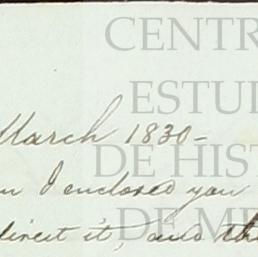 CENTR
ESTUI
March 1830-
DE HIST
I enclosed you
direct it, and th
DE ME